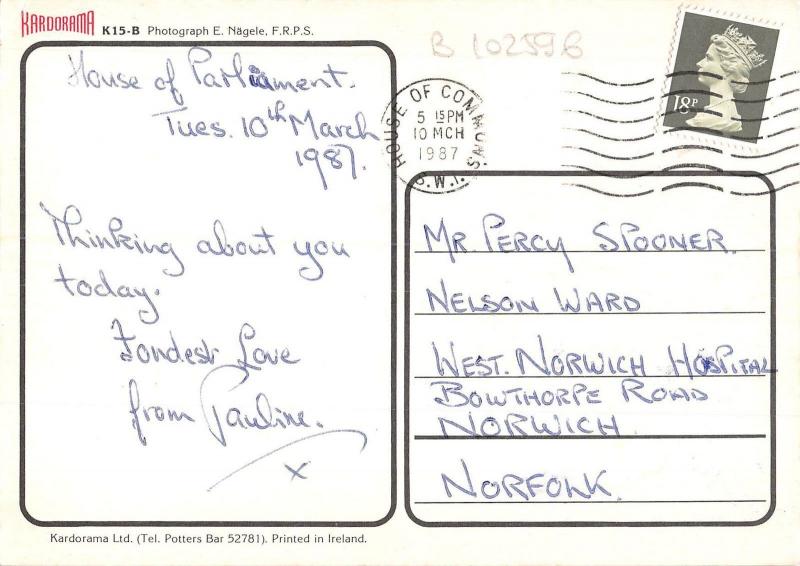 KARDORAMA K15-B Photograph E. Nägele, F.R.P.S.
B 102596
18P
HOUSE OF COMMONS. S.W.1.
5 15PM
10 MCH
1987
House of Parliament.
Tues. 10th March
1987.
Thinking about you
today.
Fondest Love
from Pauline.
x
MR PERCY SPOONER.
NELSON WARD
WEST. NORWICH HOSPITAL
BOWTHORPE ROAD
NORWICH.
NORFOLK.
Kardorama Ltd. (Tel. Potters Bar 52781). Printed in Ireland.